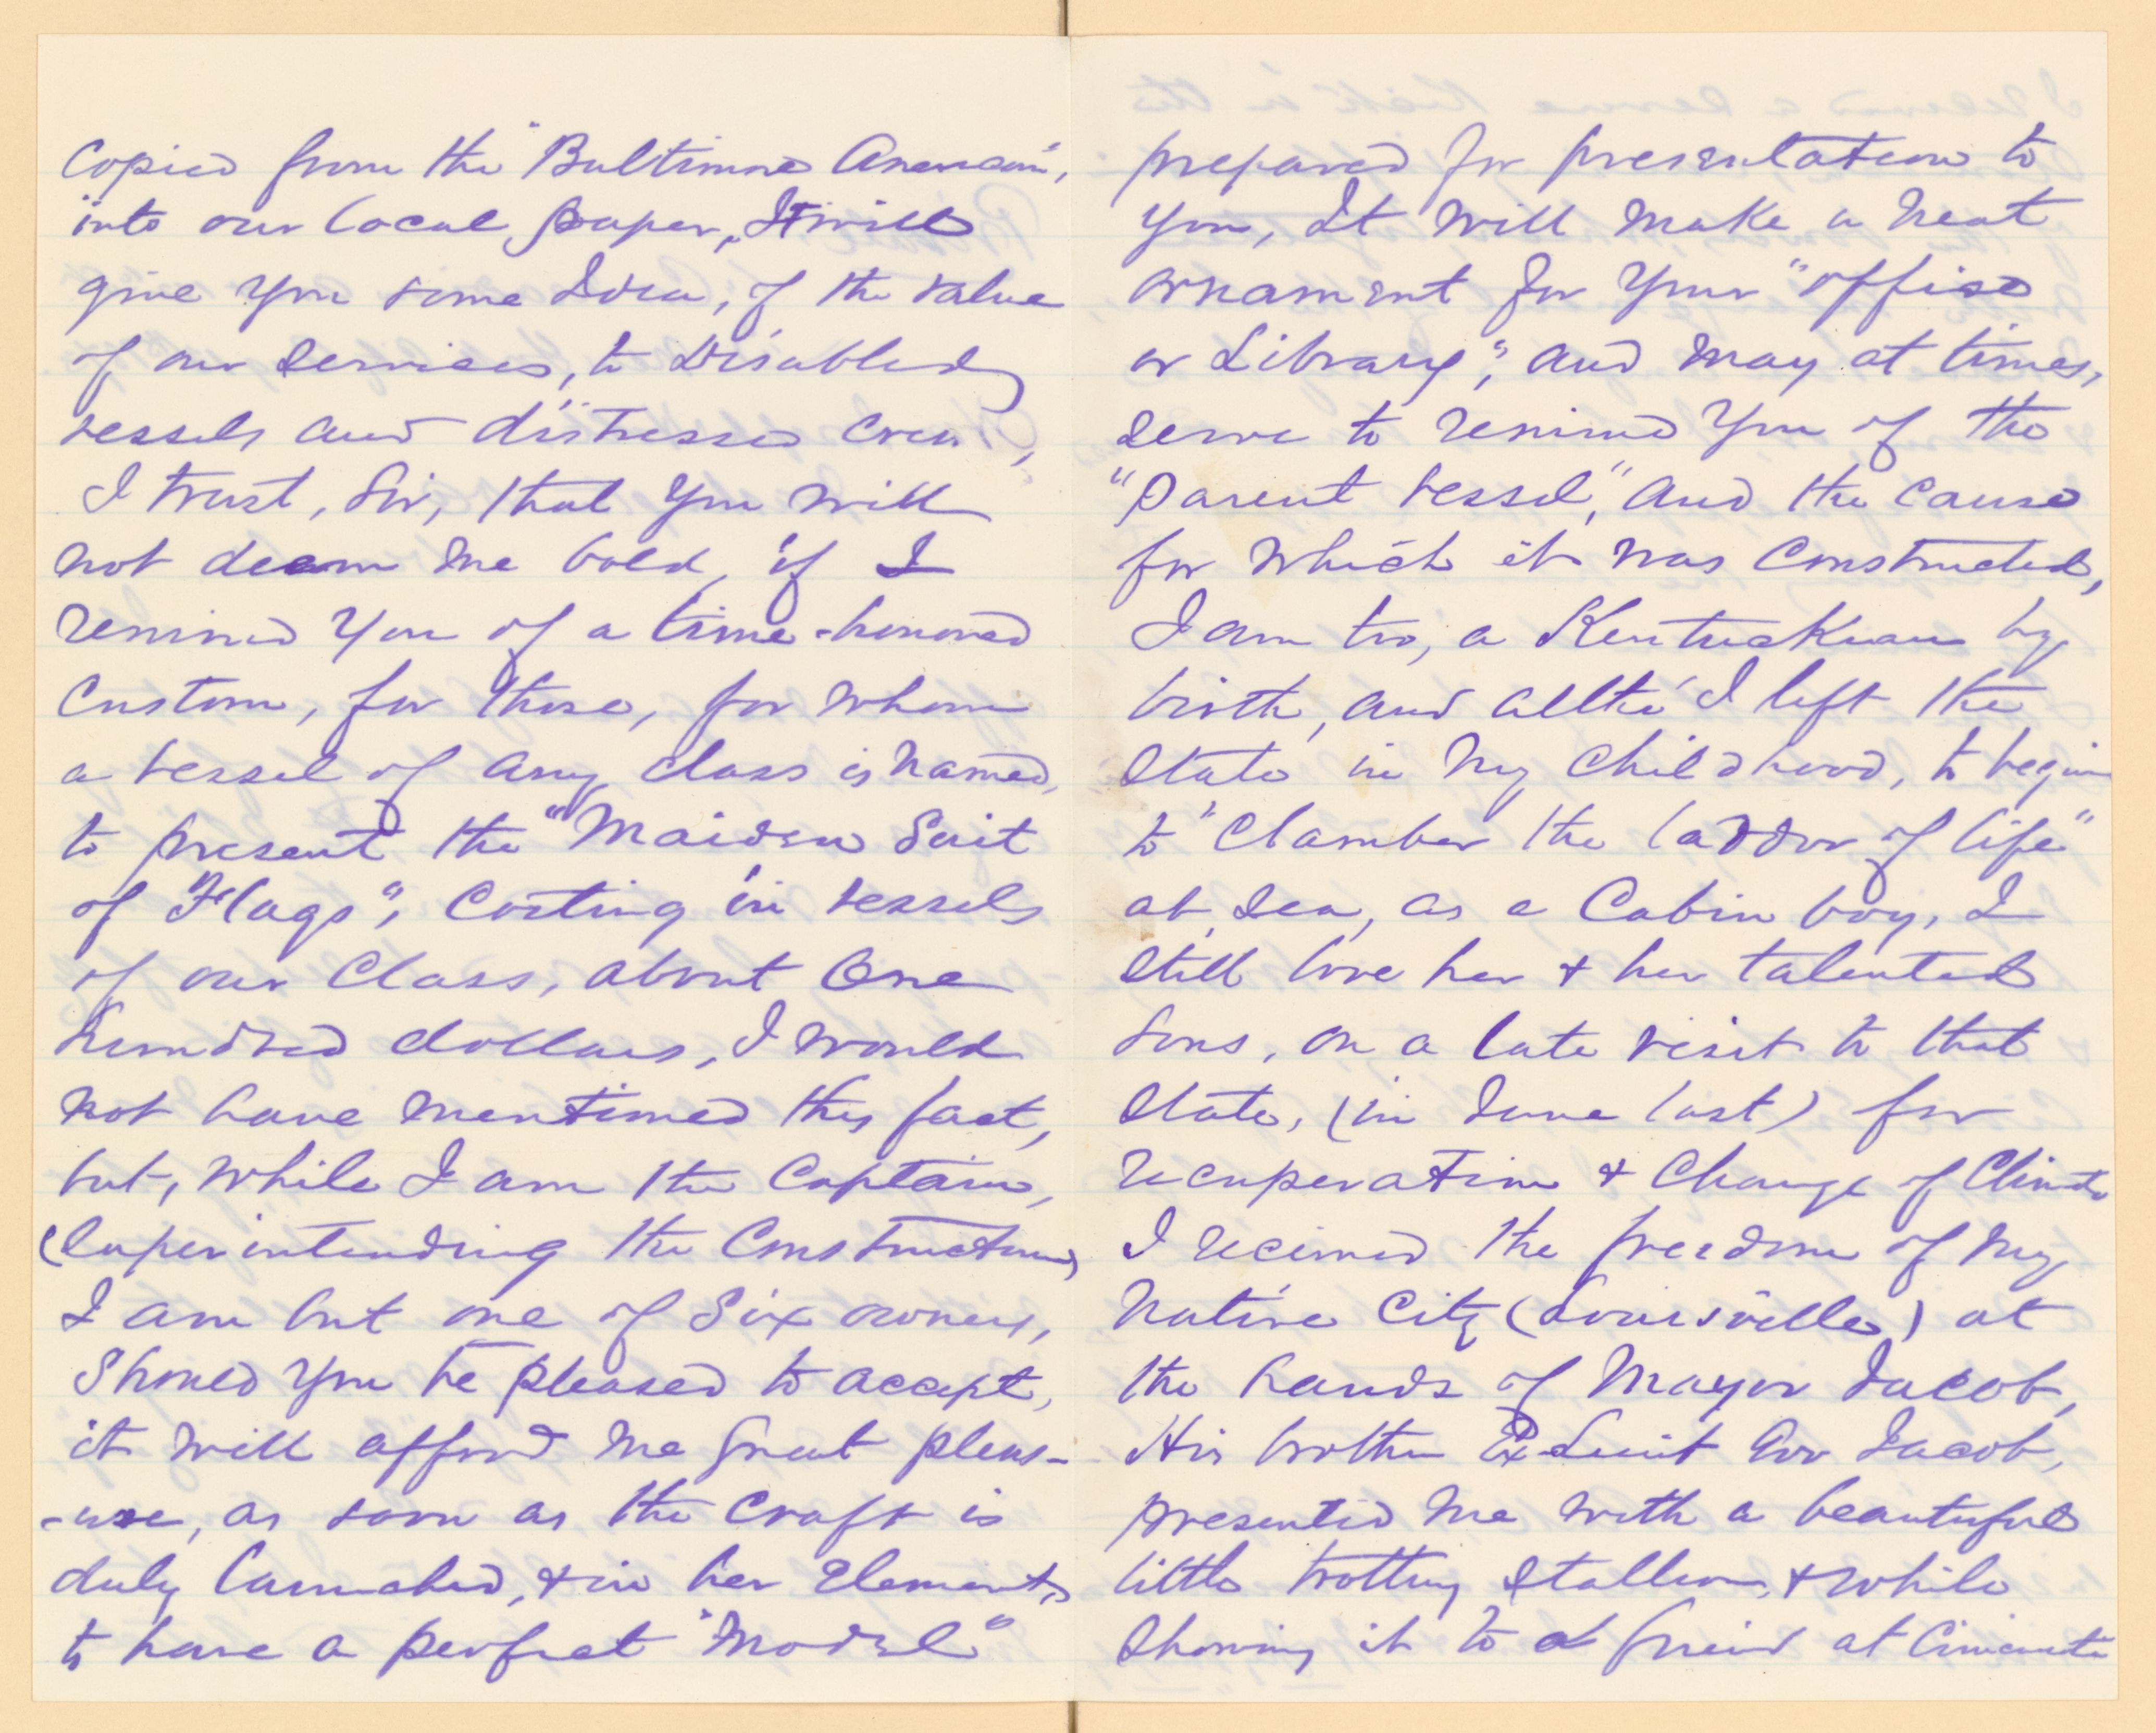 Copied from the "Baltimore American",
into our local paper, It will
give you some Idea, of the value
of our services, to Disabled
vessels and distressed crew,
I trust, Sir, that you will
not deem me bold, if I
remind you of a time-honored
Custom, for those, for whom
a vessel of any class is named,
to present the "Maiden Suit
of Flags", Costing in vessels
of our Class, about One
hundred dollars, I would
not have mentioned this fact,
but, while I am the Captain,
(Superintending the Construction)
I am but one of Six owners,
Should you be pleased to accept,
it will afford me great pleas-
-ure, as soon as the Craft is
duly launched, & in her Elements
to have a perfect "Model"
prepared for presentation to
you, It will make a neat
ornament for your "office
or Library", and may at times,
serve to remind you of the
"Parent vessel," and the cause
for which it was Constructed,
I am too, a Kentuckian by
birth, and altho' I left the
State in my childhood, to begin
to "Clamber the ladder of life"
at Sea, as a Cabin boy, I
still love her & her talented
Sons, on a late visit to that
State, (in June last) for
recuperation & Change of Climate
I received the freedom of my
Native City (Louisville) at
the hands of Mayor Jacob,
His brother Ex Lieut Gov Jacob,
presented me with a beautiful
little trotting Stallion, & while
Showing it to a friend at Cincinnati